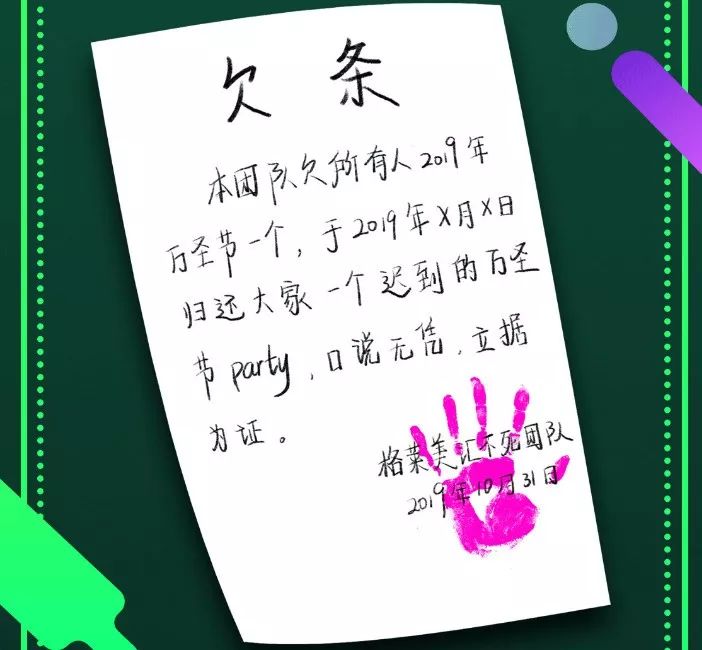 欠条
本团队欠所有人2019年
万圣节一个，于2019年X月X日
归还大家一个迟到的万圣
节party，口说无凭，立据
为证。
格莱美汇不死团队
2019年10月31日